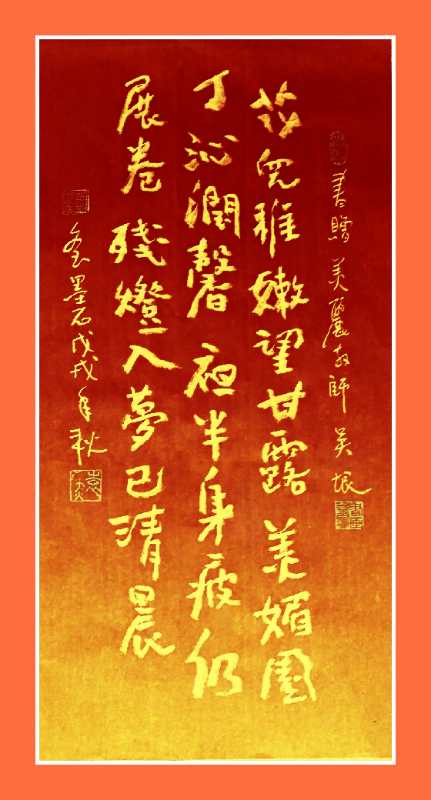 書贈美麗教師吴垠
花兒稚嫩望甘露美媚園
丁沁潤馨夜半身疲仍
展卷殘燈入夢已清晨
墨石戊戌年秋